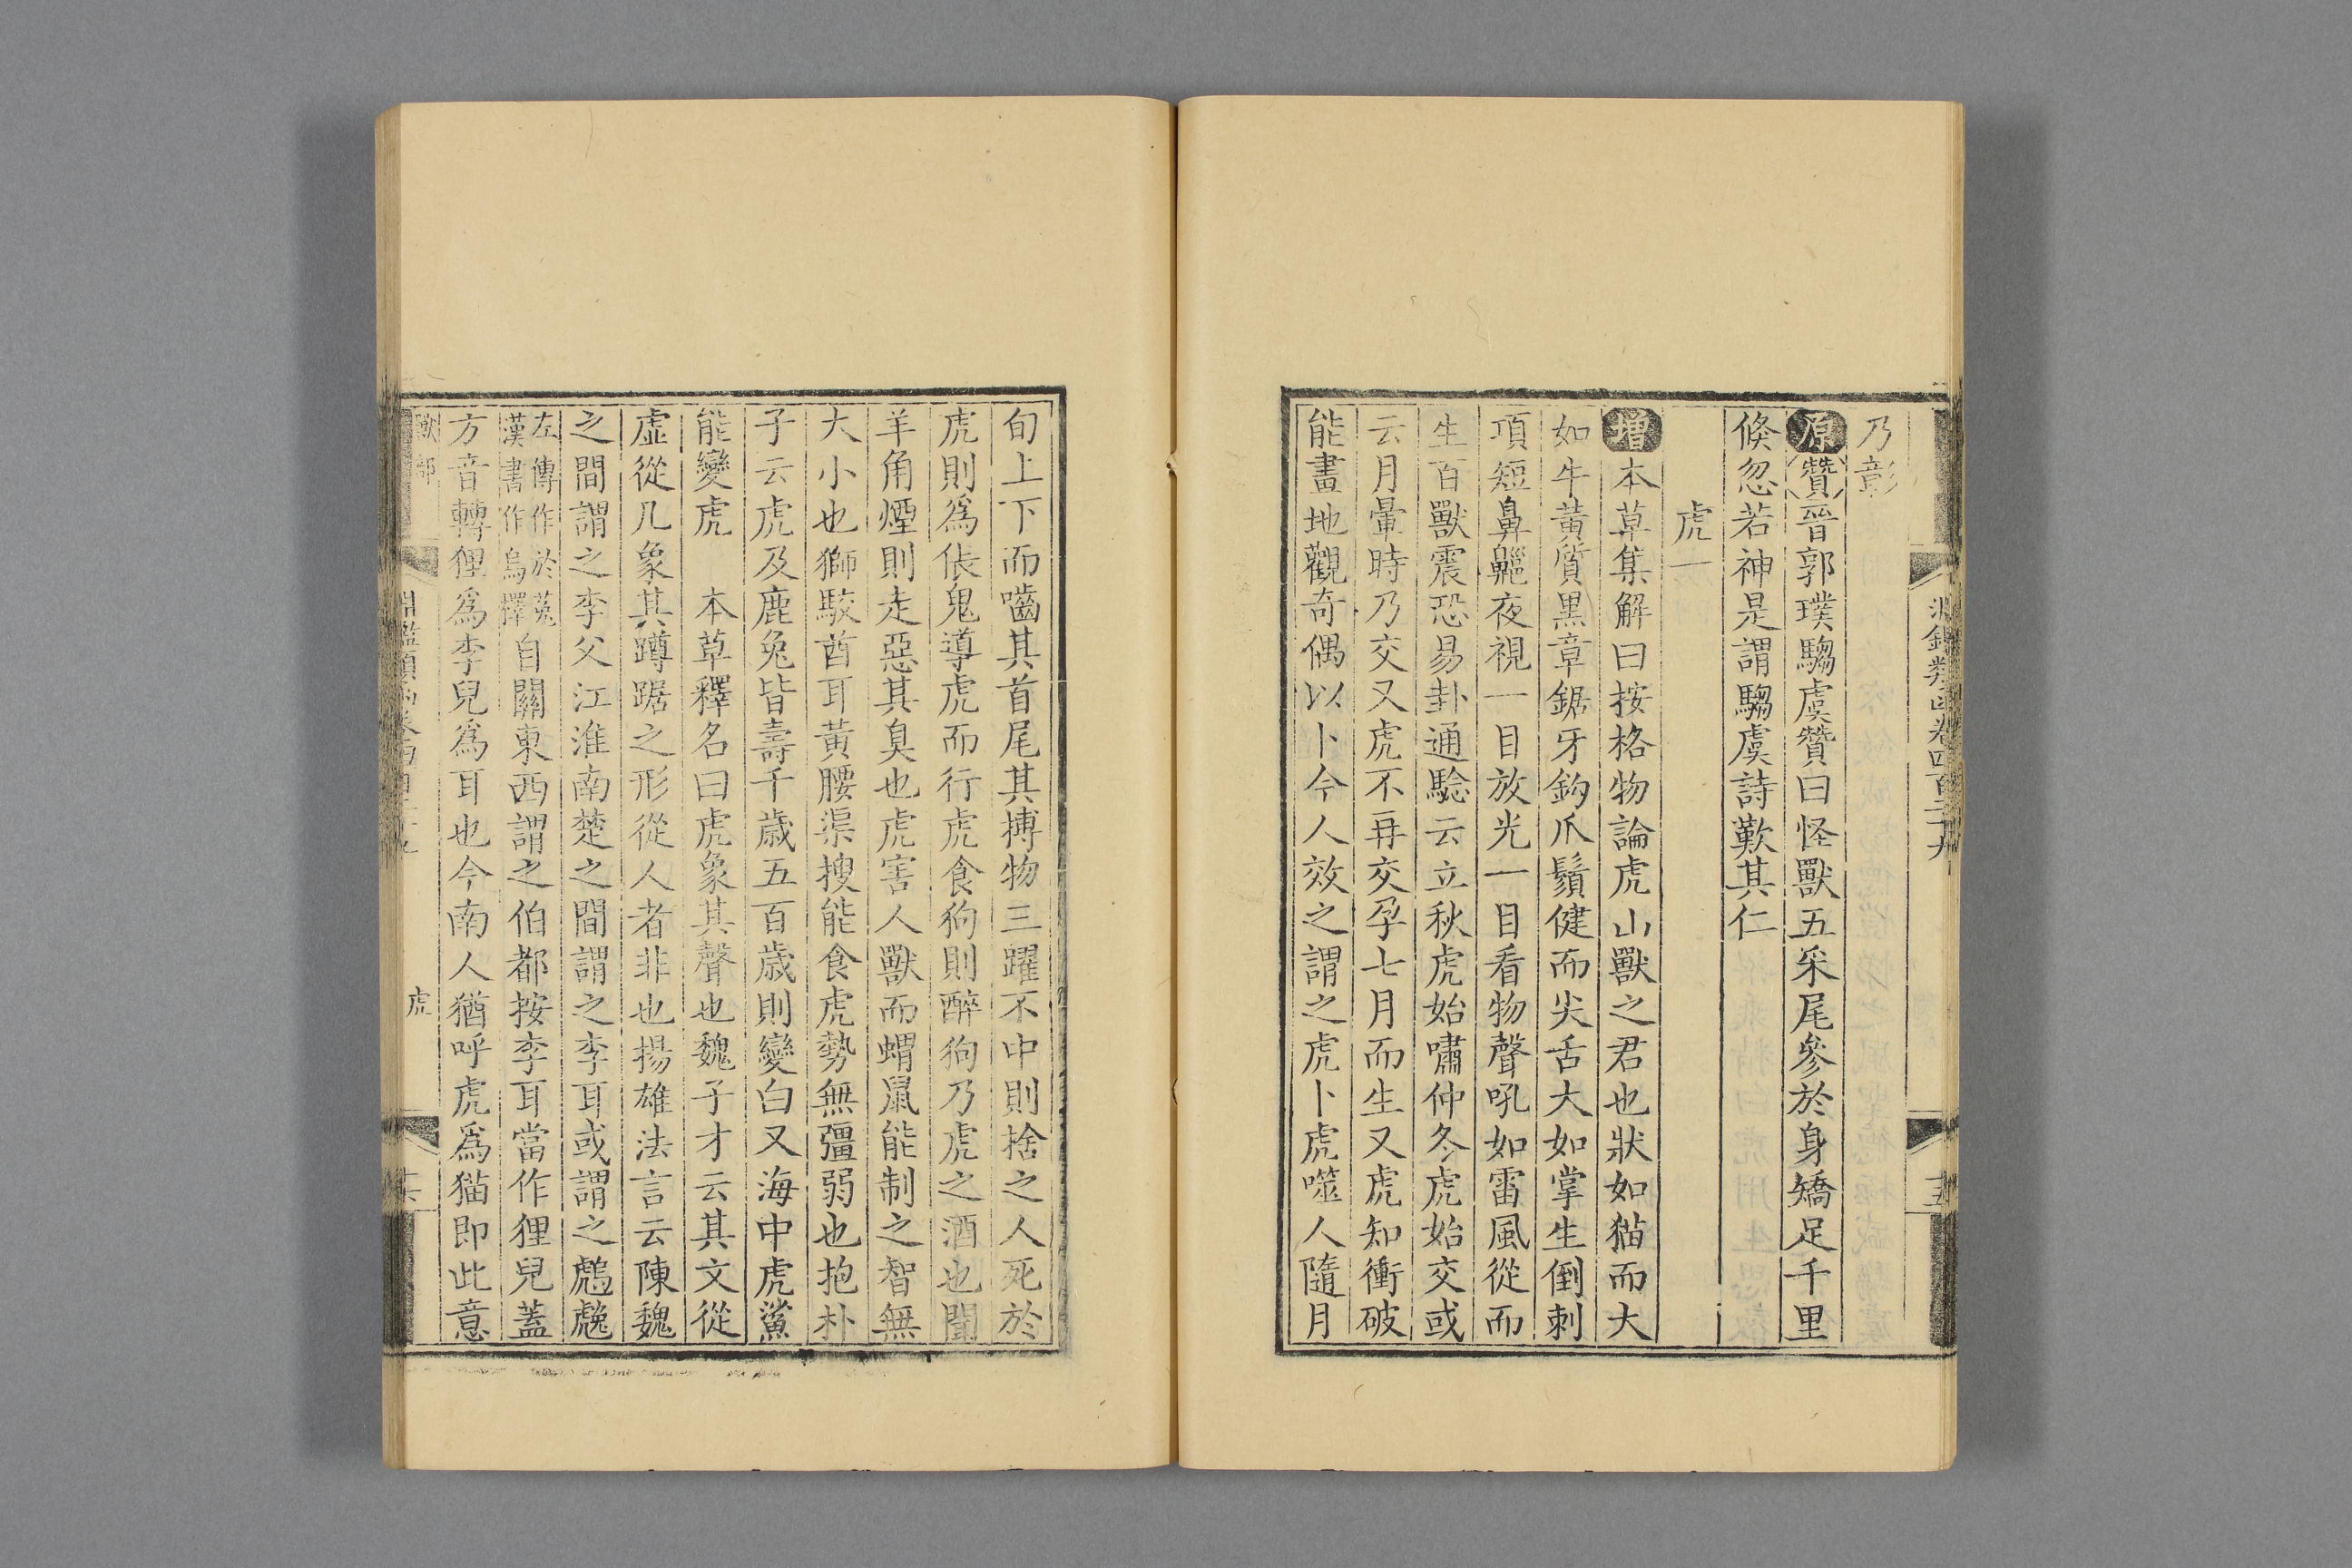 乃彰
原贊晉郭璞騶虞贊曰怪獸五采尾參於身矯足千里
倏忽若神是謂騶虞詩歎其仁
虎一
增本草集解曰按格物論虎山獸之君也狀如猫而大
如牛黃質黑章鋸牙鉤爪鬚健而尖舌大如掌生倒刺
項短鼻齆夜視一目放光一目看物聲吼如雷風從而
生百獸震恐易卦通驗云立秋虎始嘯仲冬虎始交或
云月暈時乃交又虎不再交孕七月而生又虎知衝破
能畫地觀奇偶以卜今人效之謂之虎卜虎噬人隨月
旬上下而嚙其首尾其搏物三躍不中則捨之人死於
虎則為倀鬼導虎而行虎食狗則醉狗乃虎之酒也聞
羊角煙則走惡其臭也虎害人獸而蝟鼠能制之智無
大小也獅駮酋耳黃腰渠搜能食虎勢無彊弱也抱朴
子云虎及鹿兔皆壽千歲五百歲則變白又海中虎鯊
能變虎 本草釋名曰虎象其聲也魏子才云其文從
虛從几象其蹲踞之形從人者非也揚雄法言云陳魏
之間謂之李父江淮南楚之間謂之李耳或謂之䖘䖘
左傳作於菟漢書作烏檡自關東西謂之伯都按李耳當作狸兒蓋
方音轉狸為李兒為耳也今南人猶呼虎為猫即此意
獸部
虎